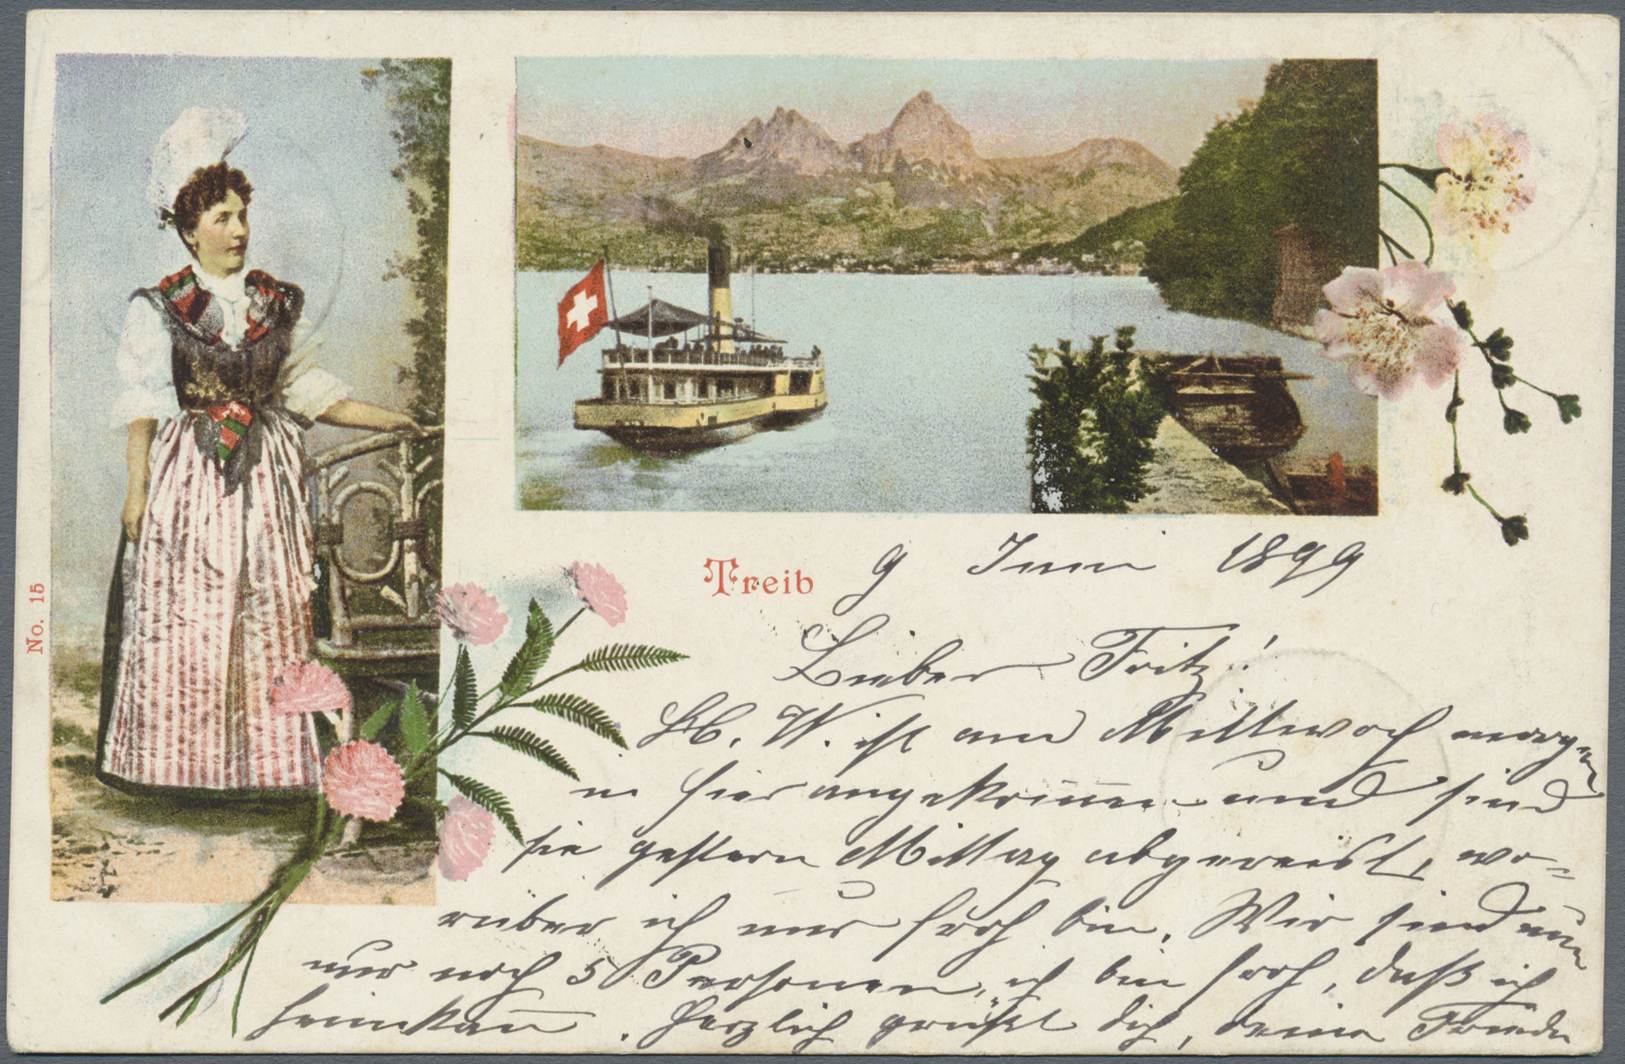 No. 15
Treib
9 Juni 1899
Lieber Fritz!
W. ist am Mittwoch morgen
in hier angekommen und sind
sie gestern Mittag abgereist, wo-
rüber ich nur froh bin. Wir sind nun
nur noch 5 Personen, ich bin froh, daß ich
heimkann. Herzlich grüßt dich, deine Frieda